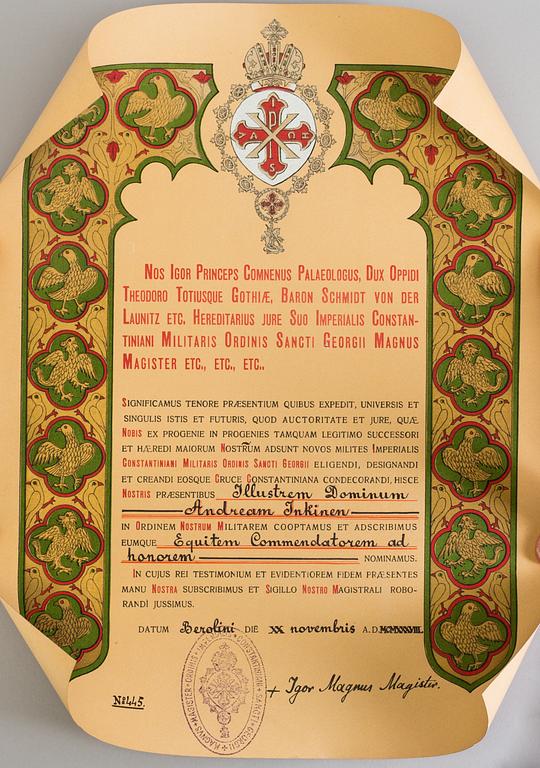 Nos Igor Princeps Comnenus Palaeologus, Dux Oppidi
Theodoro Totiusque Gothiæ, Baron Schmidt von der
Launitz etc. Hereditarius jure Suo Imperialis Constan-
tiniani Militaris Ordinis Sancti Georgii Magnus
Magister etc., etc., etc..
Significamus tenore præsentium quibus expedit, universis et
singulis istis et futuris, quod auctoritate et jure, quæ
Nobis ex progenie in progenies tamquam legitimo successori
et hæredi maiorum Nostrũm adsunt novos milites Imperialis
Constantiniani Militaris Ordinis Sancti Georgii eligendi, designandi
et creandi eosque Cruce Constantiniana condecorandi, hisce
Nostris præsentibus Illustrem Dominum
Andream Inkinen
in Ordinem Nostrum Militarem cooptamus et adscribimus
eumque Equitem Commendatorem ad
honorem nominamus.
In cujus rei testimonium et evidentiorem fidem præsentes
manu Nostra subscribimus et Sigillo Nostro Magistrali robo-
randi jussimus.
Datum Berolini die xx novembris A.D.
Nº 445.
+ Igor Magnus Magister.
MAGNUS MAGISTER ORDINIS IMPERIALIS CONSTANTINIANI SANCTI GEORGII